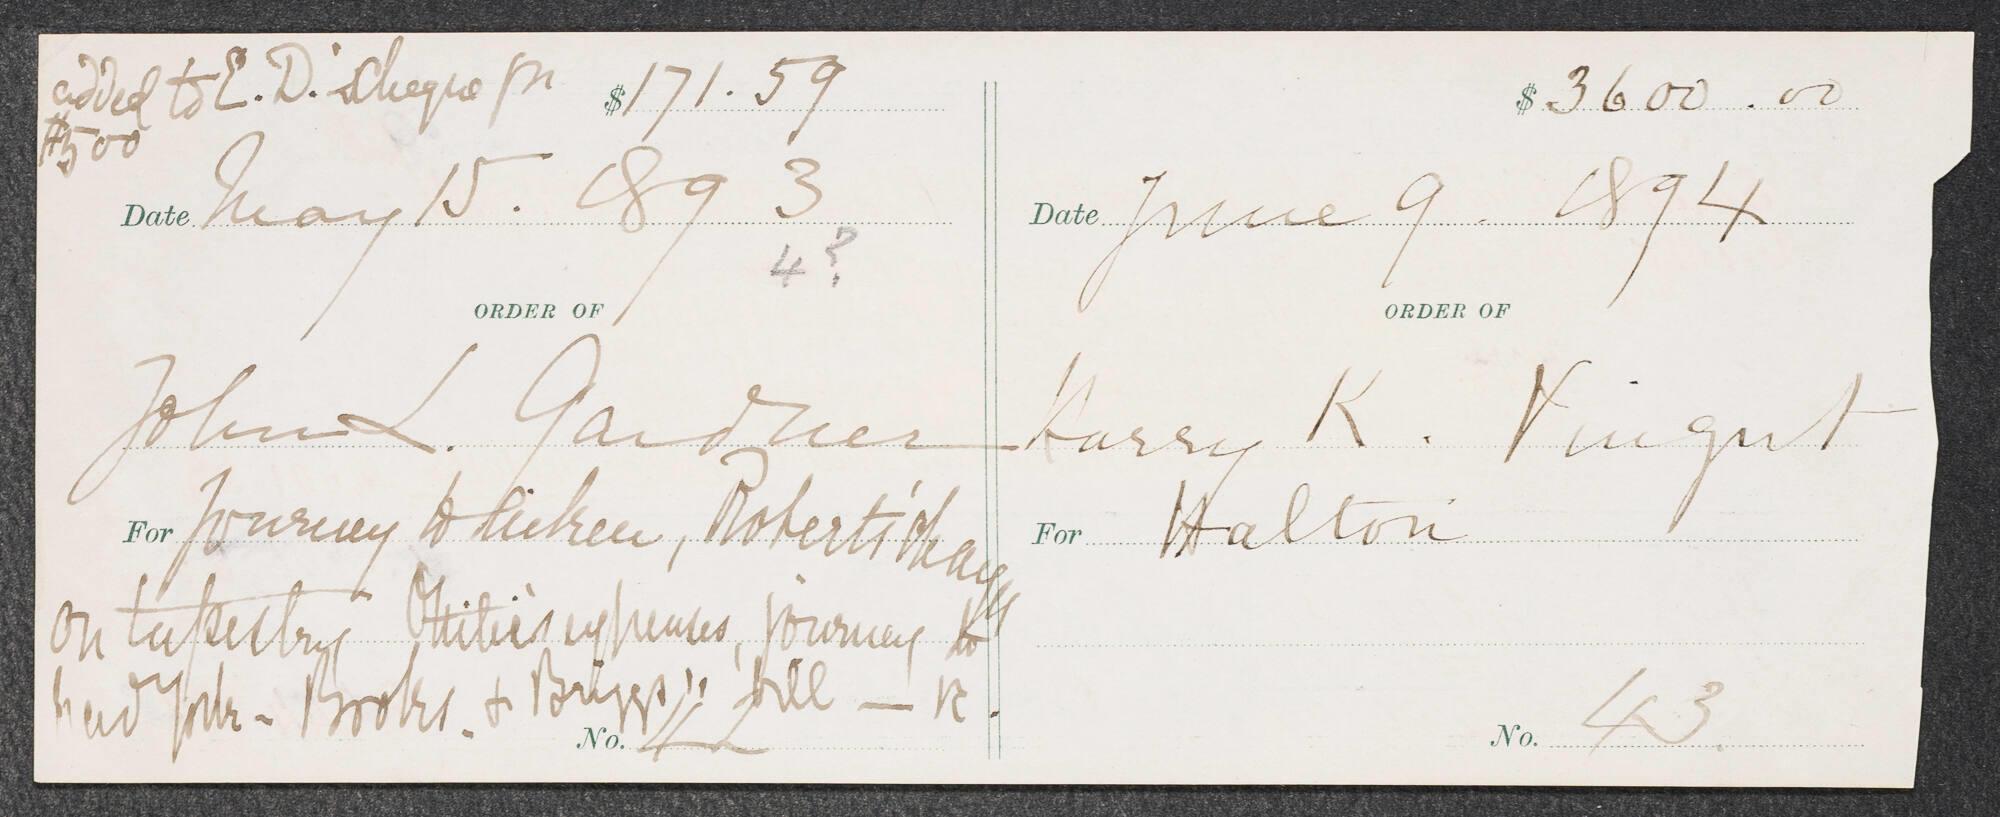 added to E. D.'s cheque for
$500
$171.59
Date May 15. 1893
4?
ORDER OF
John L. Gardner
For journey to Aiken, Roberts' pay
on tapestry Ottilie's expenses, journey to
New York - Books. & Briggs' bill —
No. 42
$3600.00
Date June 9. 1894
ORDER OF
Harry K. Vingut
For Halton
No. 43